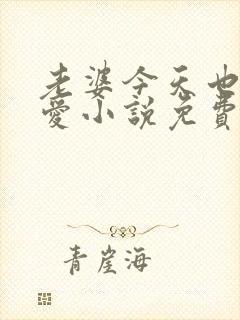 老婆今天也
愛小説免費
青崖海